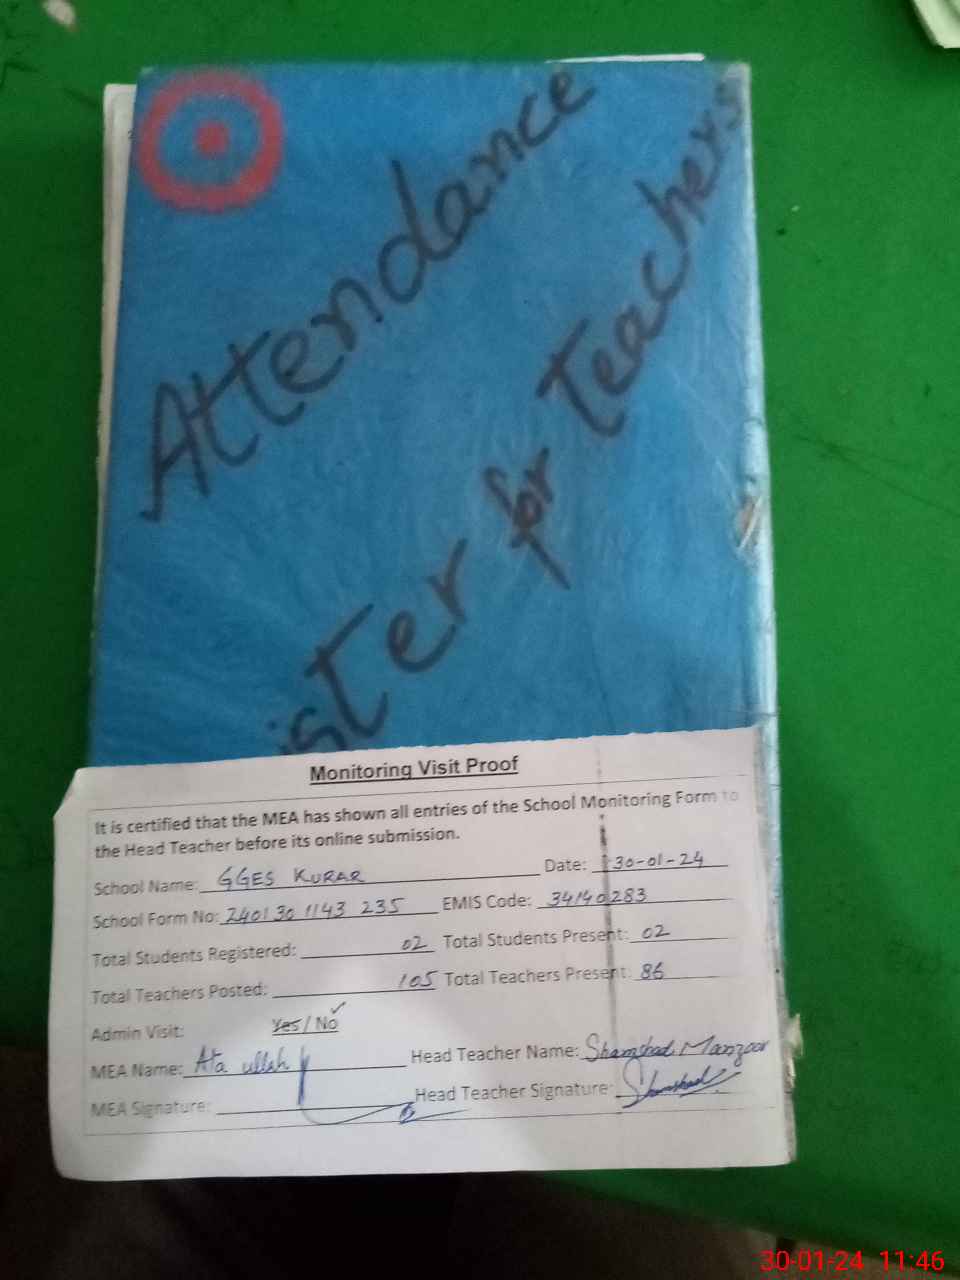 Attendance
ister for Teachers
Monitoring Visit Proof
It is certified that the MEA has shown all entries of the School Monitoring Form to
the Head Teacher before its online submission.
School Name: GGES KURAR Date: 30-01-24
School Form No: 240130 1143 235 EMIS Code: 34140283
Total Students Registered: 02 Total Students Present: 02
Total Teachers Posted: 105 Total Teachers Present: 86
Admin Visit: Yes / No ✓
MEA Name: Ata ullah Head Teacher Name: Shamshad Manzoor
MEA Signature: Head Teacher Signature: Shamshad
30-01-24 11:46